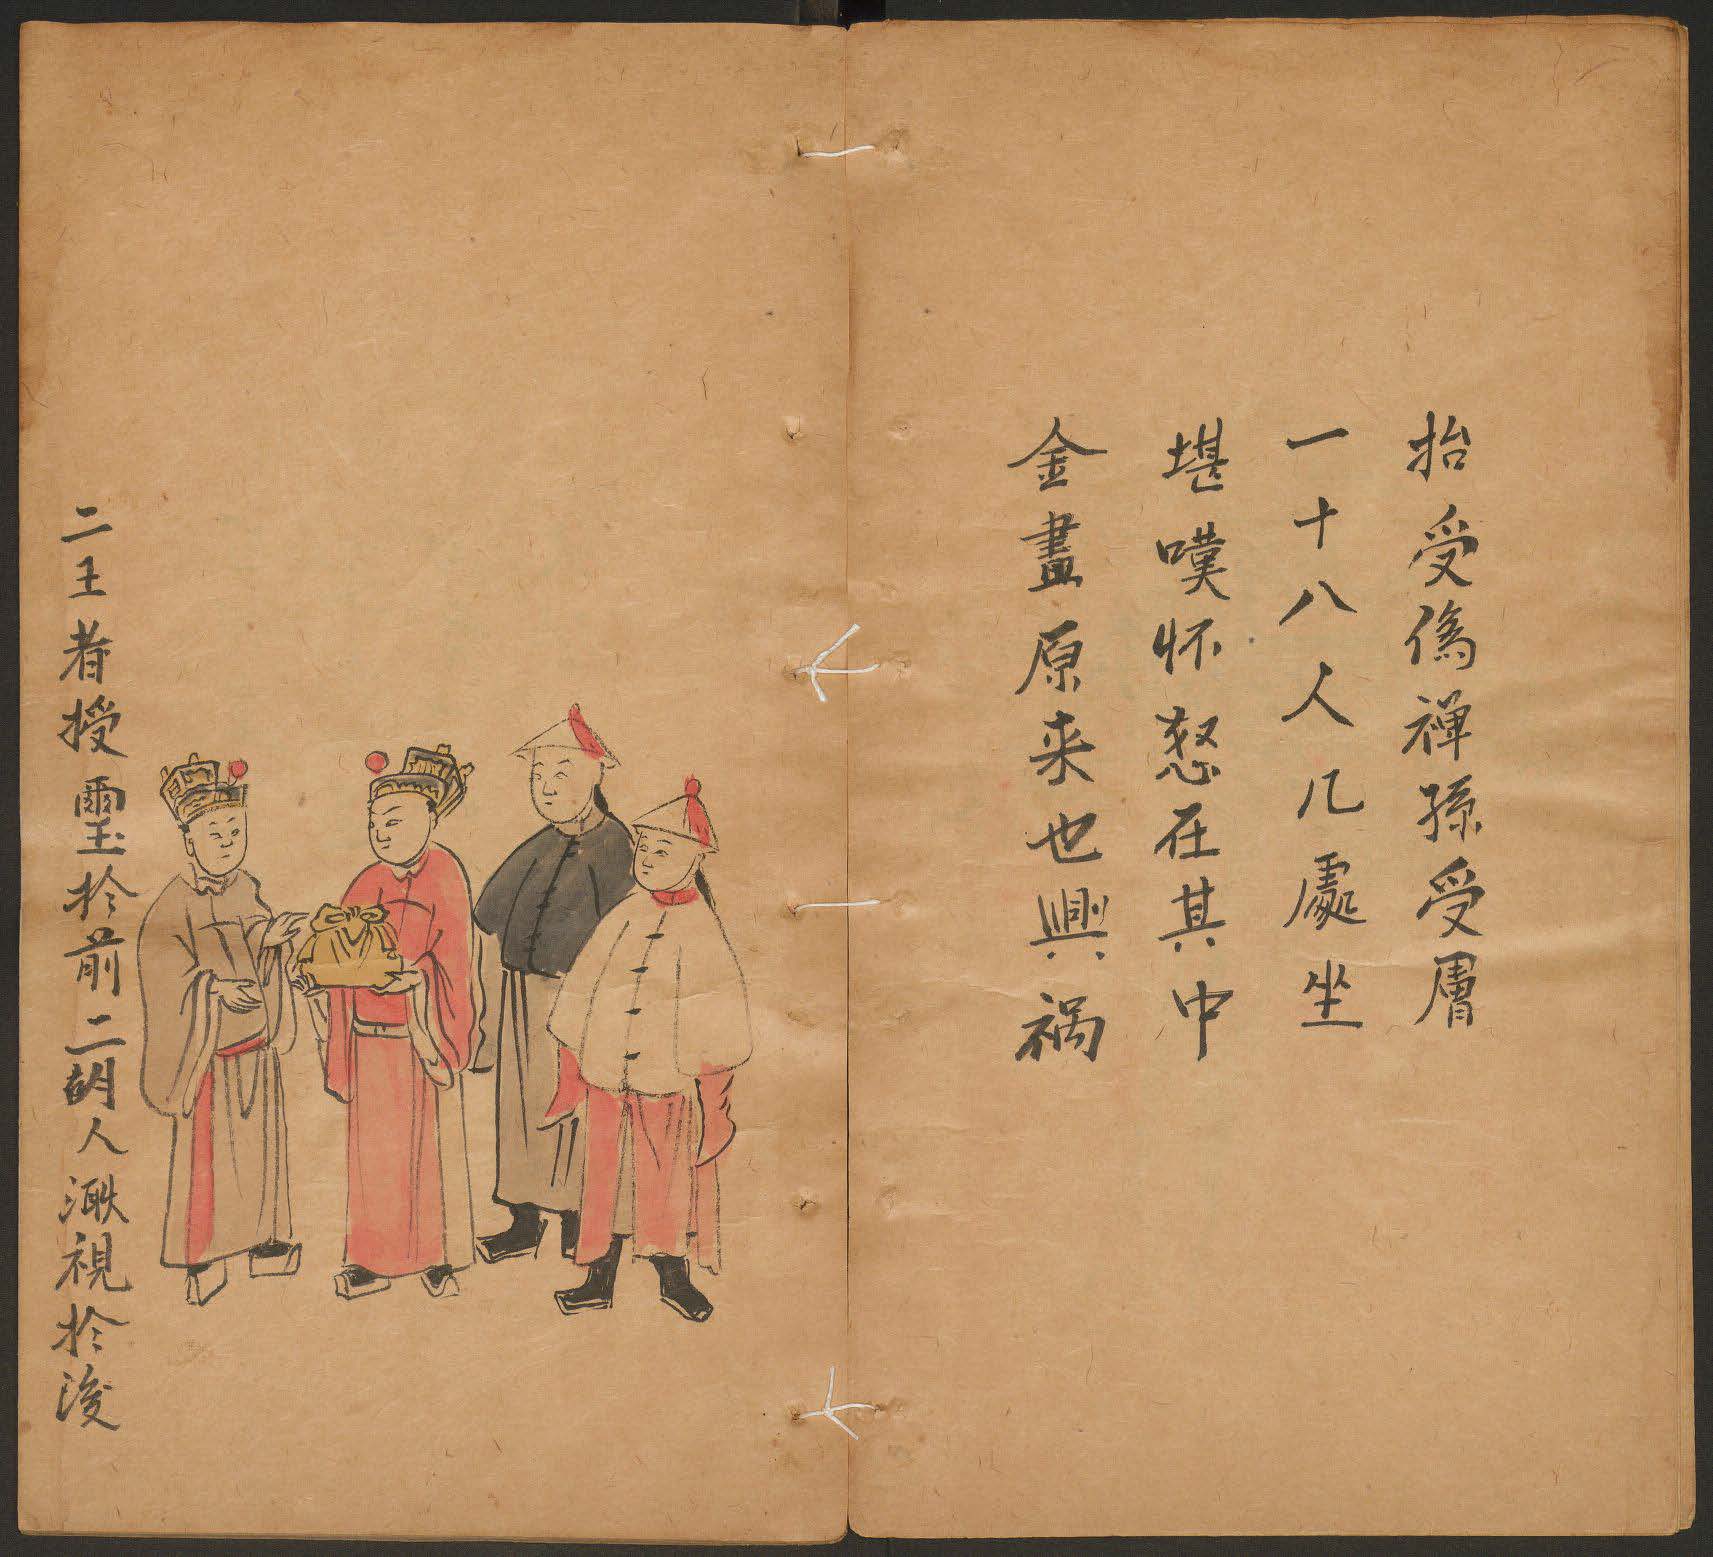 抬受偽禪孫受膚
一十八人几處坐
堪嘆怀怒在其中
金畫原来也興祸
二王者授璽於前二胡人溵視於浚